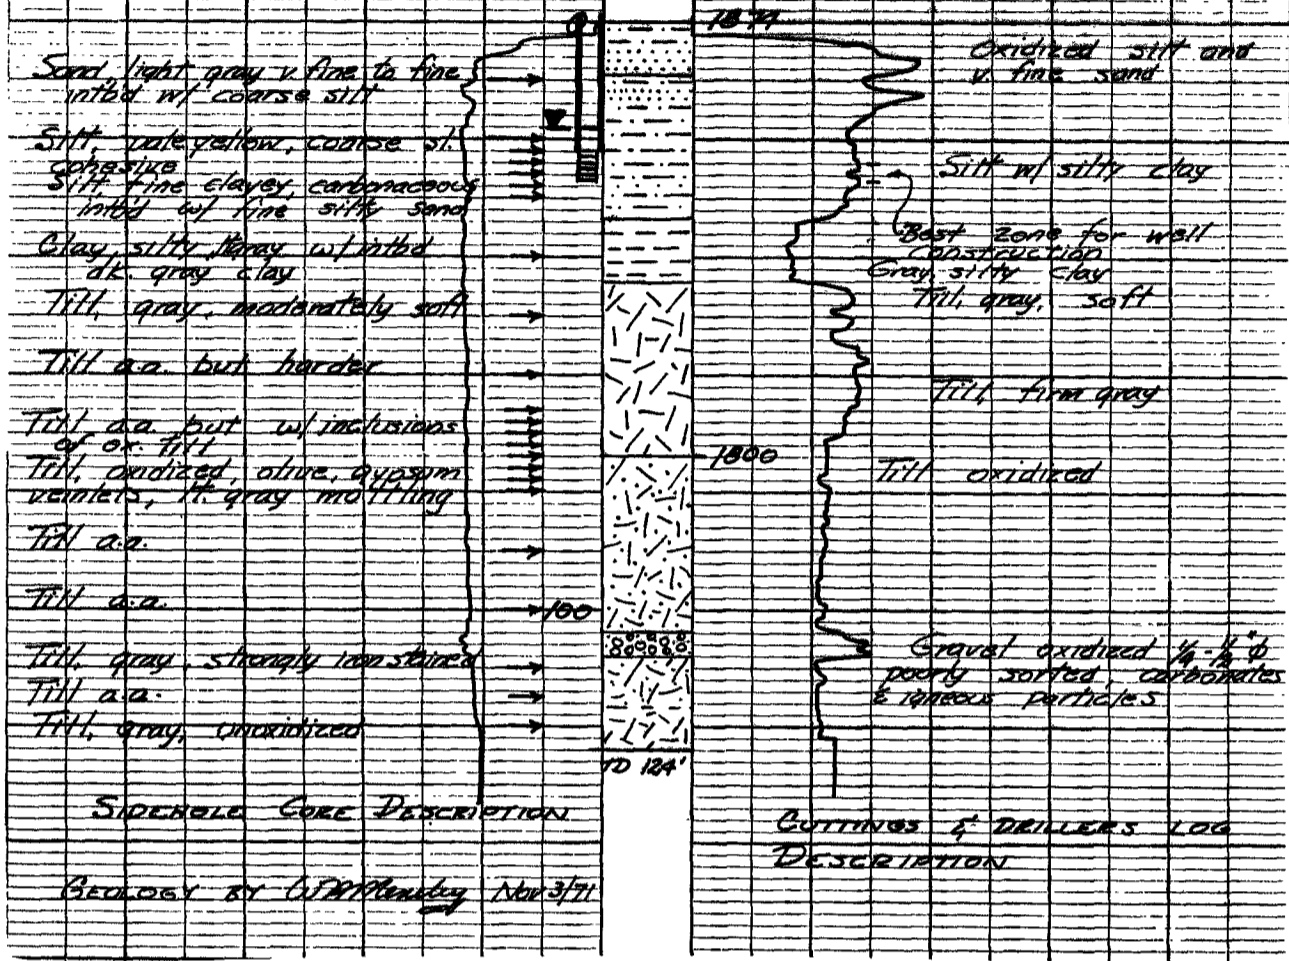 0
1874
Sand, light gray v. fine to fine
intbd w/ coarse silt
Silt, pale yellow, coarse sl.
cohesive
Silt fine clayey, carbonaceous
intbd w/ fine silty sand
Clay, silty, gray w/ intbd
dk. gray clay
Till, gray, moderately soft
Till a.a. but harder
Till a.a. but w/ inclusions
of ox. till
Till, oxidized, olive, gypsum
veinlets, lt. gray mottling
Till a.a.
Till a.a.
Till, gray, strongly iron stained
Till a.a.
Till, gray, unoxidized
SIDEHOLE CORE DESCRIPTION
GEOLOGY BY Nov 3/71
1800
100
TD 124'
Oxidized silt and
v. fine sand
Silt w/ silty clay
Best zone for well
construction
Gray, silty clay
Till, gray, soft
Till, firm gray
Till oxidized
Gravel oxidized 1/4 - 1/2" φ
poorly sorted, carbonates
& igneous particles
CUTTINGS & DRILLERS LOG
DESCRIPTION